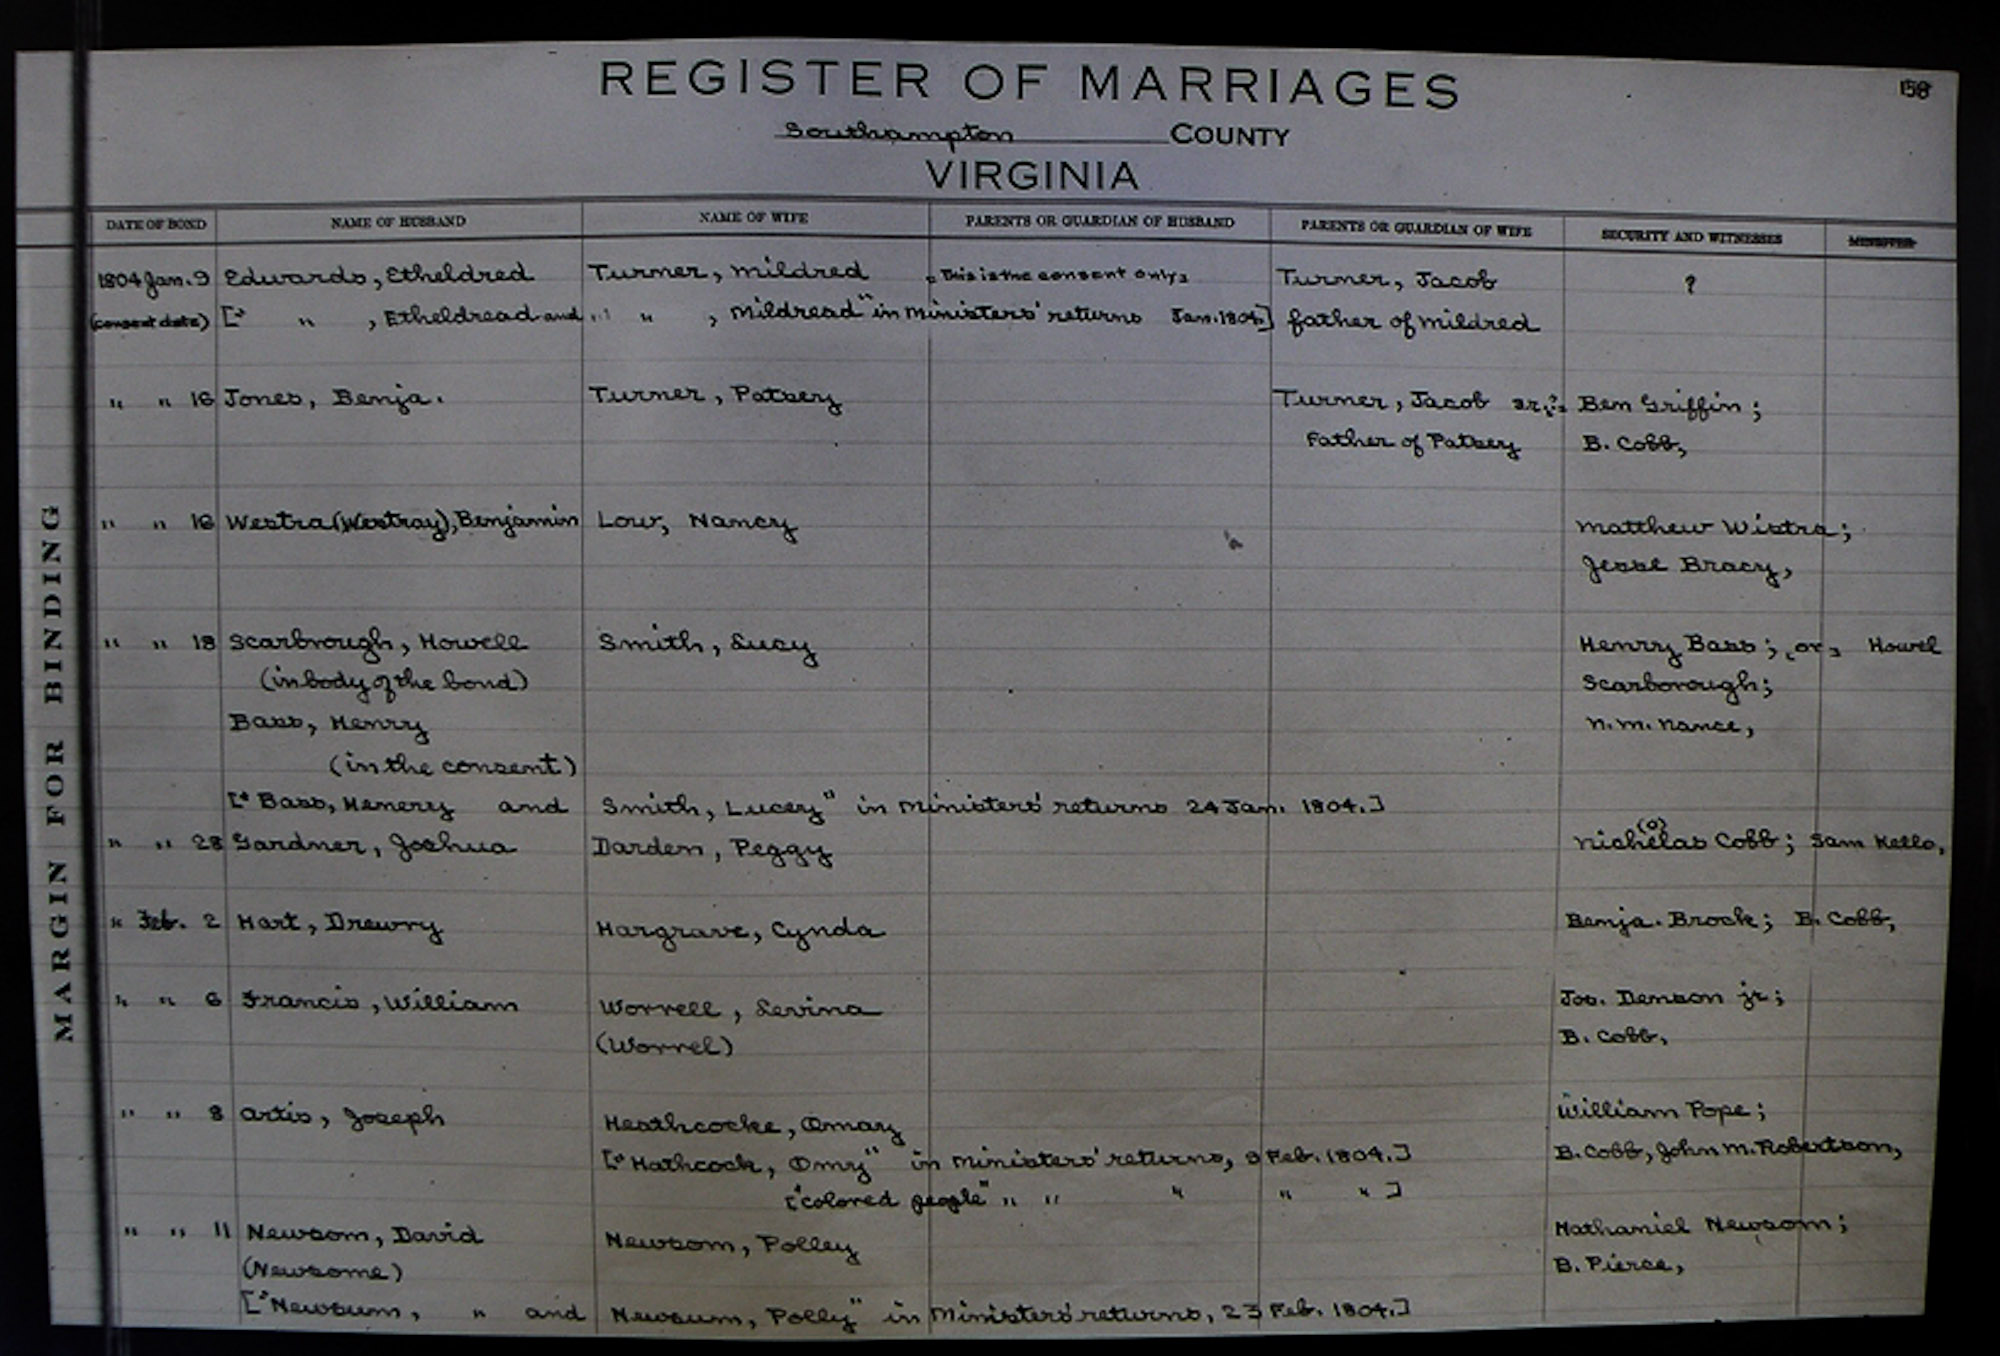 REGISTER OF MARRIAGES
158
Southampton COUNTY
VIRGINIA
DATE OF BOND NAME OF HUSBAND NAME OF WIFE PARENTS OR GUARDIAN OF HUSBAND PARENTS OR GUARDIAN OF WIFE SECURITY AND WITNESSES MINISTER
1804 Jan. 9 Edwards, Etheldred Turner, Mildred [This is the consent only] Turner, Jacob ?
(consent date) [" " , Etheldread and " " , Mildread" in Ministers' returns Jan. 1804.] father of Mildred
" " 16 Jones, Benja. Turner, Patsey Turner, Jacob sr.[?] Ben Griffin;
Father of Patsey B. Cobb,
" " 16 Westra (Westray), Benjamin Low, Nancy Matthew Wistra;
Jesse Bracy,
" " 18 Scarbrough, Howell Smith, Lucy Henry Bass; [or] Howel
(in body of the bond) Scarborough;
Bass, Henry N. M. Nance,
(in the consent)
[" Bass, Henerry and Smith, Lucey" in Ministers' returns 24 Jan. 1804.]
" " 28 Gardner, Joshua Darden, Peggy Nichelas (o) Cobb; Sam Kello,
" Feb. 2 Hart, Drewry Hargrave, Cynda Benja. Brock; B. Cobb,
" " 6 Francis, William Worrell, Levina Jos. Denson jr;
(Worrel) B. Cobb,
" " 8 Artis, Joseph Heathcocke, Omary William Pope;
[" Hathcock, Omry" in Ministers' returns, 9 Feb. 1804.] B. Cobb, John M. Robertson,
["colored people" " " " " "]
" " 11 Newsom, David Newsom, Polley Nathaniel Newsom;
(Newsome) B. Pierce,
["Newsum, " and Newsum, Polly" in Ministers' returns, 23 Feb. 1804.]
MARGIN FOR BINDING